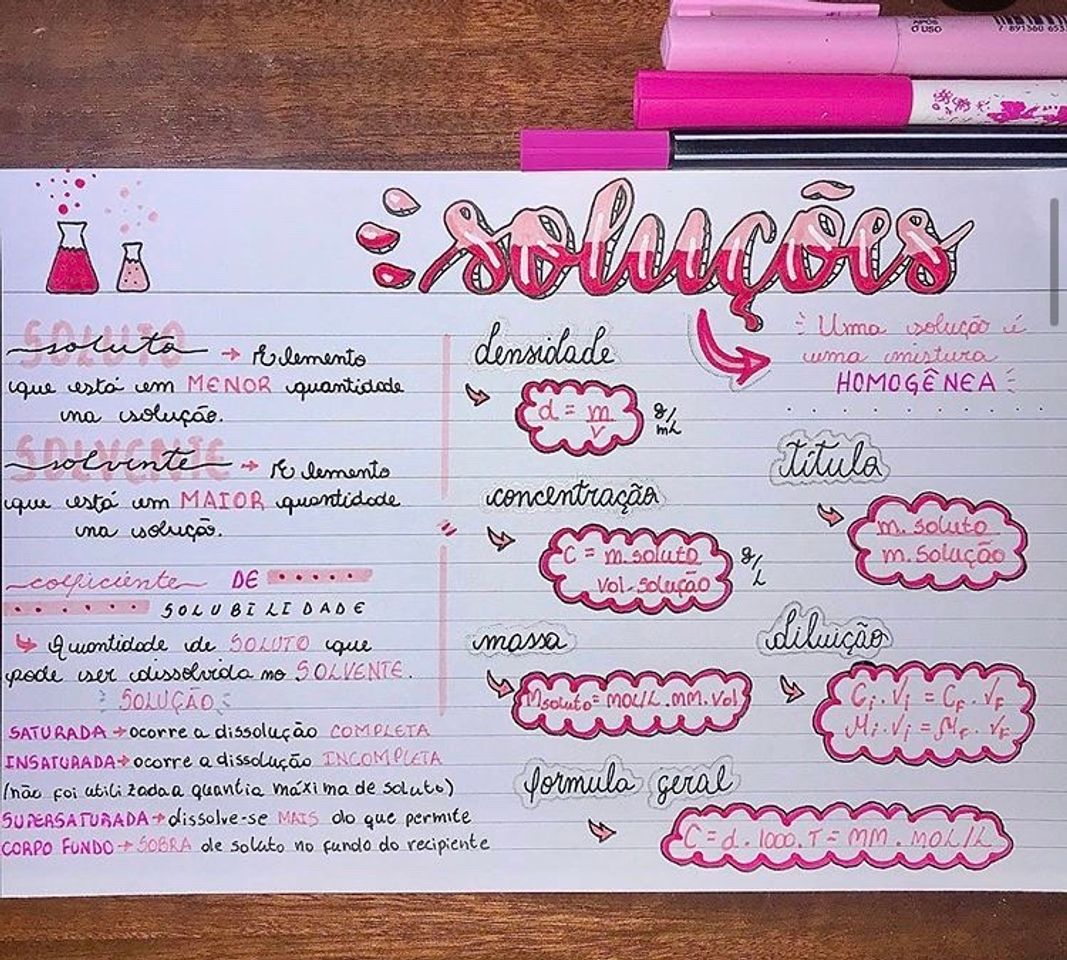 APÓS
O USO
soluções
SOLUTO
soluto → Elemento
que está em MENOR quantidade
na solução.
SOLVENTE
solvente → Elemento
que está em MAIOR quantidade
na solução.
coeficiente DE
SOLUBILIDADE
Quantidade de SOLUTO que
pode ser dissolvida no SOLVENTE.
SOLUÇÃO
SATURADA → ocorre a dissolução COMPLETA
INSATURADA → ocorre a dissolução INCOMPLETA
(não foi utilizada a quantia máxima de soluto)
SUPERSATURADA → dissolve-se MAIS do que permite
CORPO FUNDO → SOBRA de soluto no fundo do recipiente
densidade
d = m/v g/mL
concentração
C = m.soluto/vol.solução g/L
massa
Msoluto = MOL/L . MM . Vol
formula geral
C = d . 1000 . T = MM . MOL/L
Uma solução é
uma mistura
HOMOGÊNEA
título
m. soluto
m. solução
diluição
Ci . Vi = CF . VF
Mi . Vi = MF . VF